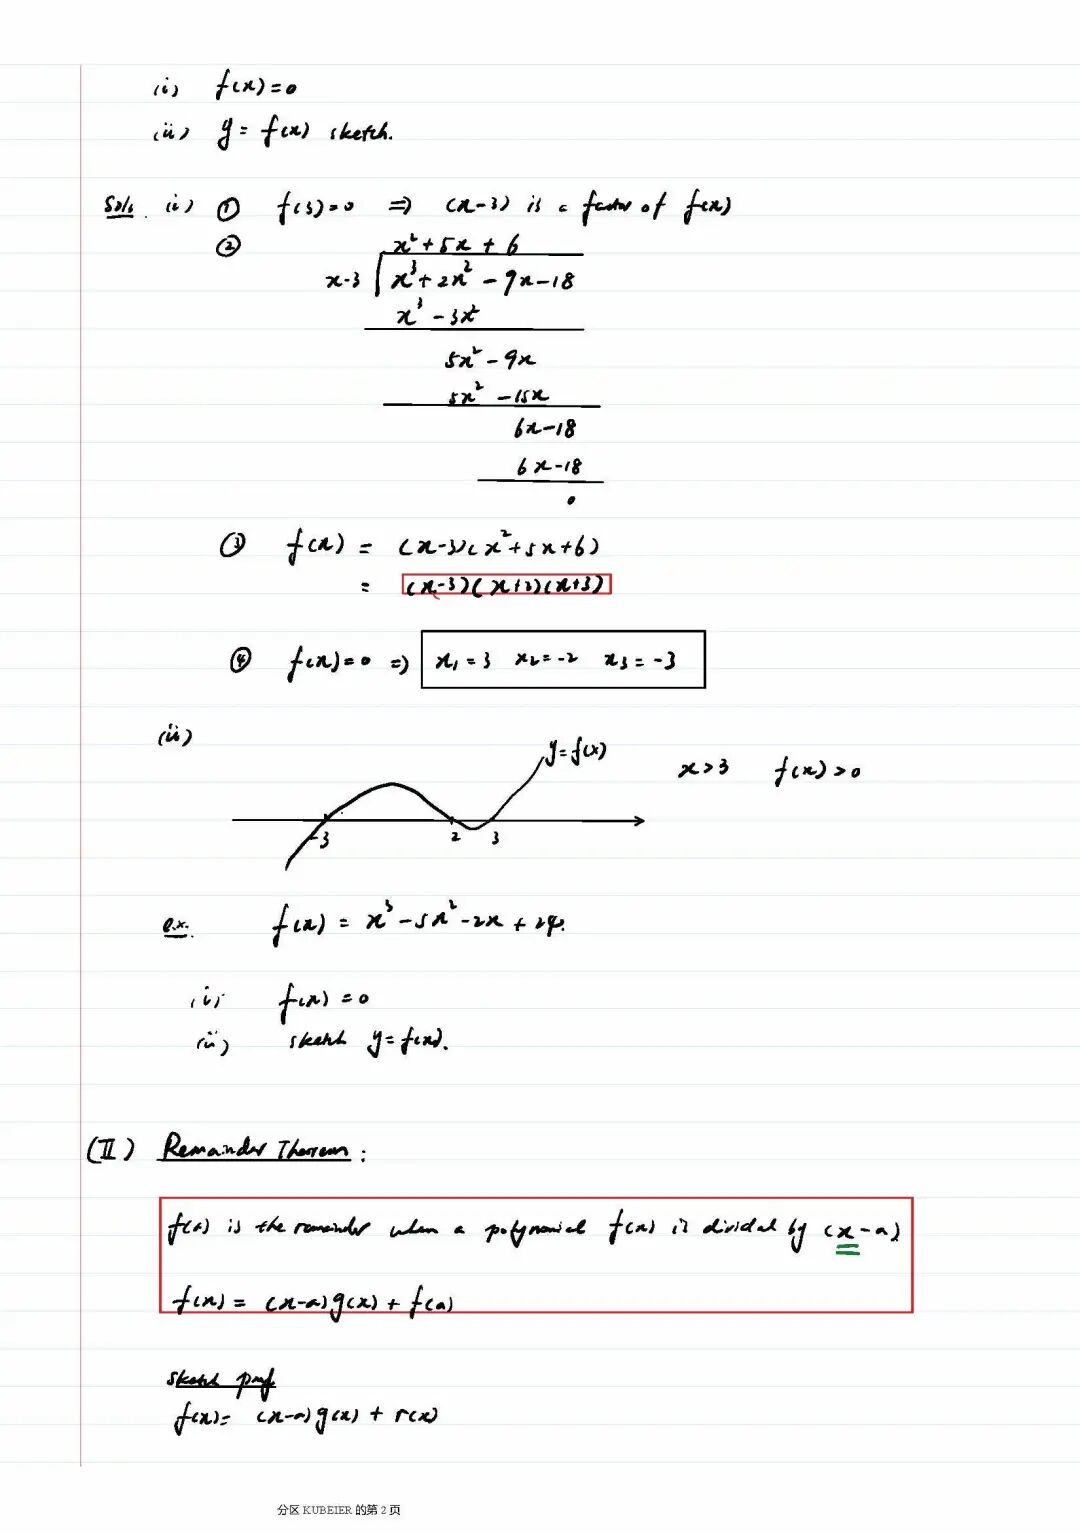 (i) f(x)=0
(ii) y = f(x) sketch.
Soln. (i) ① f(3)=0 ⇒ (x-3) is a factor of f(x)
②
x²+5x+6
x-3 x³+2x²-9x-18
x³-3x²
5x²-9x
5x²-15x
6x-18
6x-18
0
③ f(x) = (x-3)(x²+5x+6)
= (x-3)(x+2)(x+3)
④ f(x)=0 ⇒ x₁=3 x₂=-2 x₃=-3
(ii)
y=f(x)
x>3 f(x)>0
-3 2 3
e.x. f(x) = x³-5x²-2x+24.
(i) f(x)=0
(ii) sketch y=f(x).
(II) Remainder Theorem:
f(a) is the remainder when a polynomial f(x) is divided by (x-a)
f(x) = (x-a)g(x) + f(a)
Sketch proof
f(x)= (x-a)g(x) + r(x)
分区 KUBEIER 的第 2 页